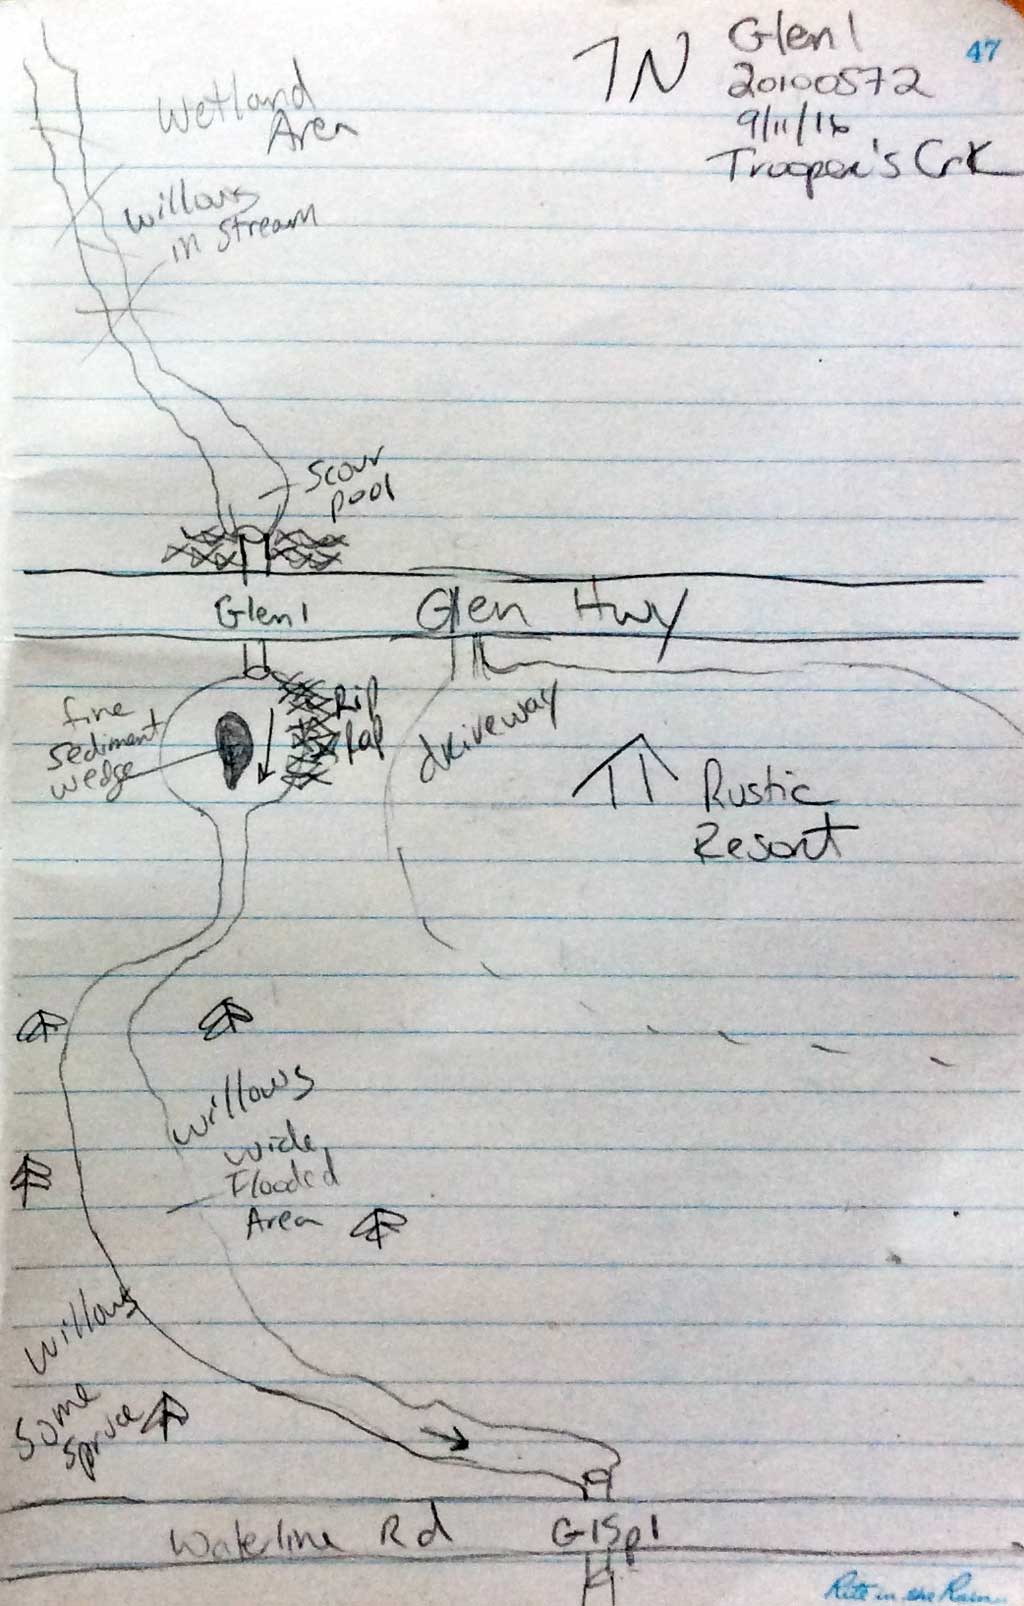 47
Glen1
20100572
9/11/16
Trooper's Crk
N
Wetland
Area
willows
in stream
scour
pool
Glen1
Glen Hwy
fine
sediment
wedge
Rip
Rap
driveway
Rustic
Resort
willows
wide
Flooded
Area
willows
Some
spruce
Waterline Rd
G1Sp1
Rite in the Rain